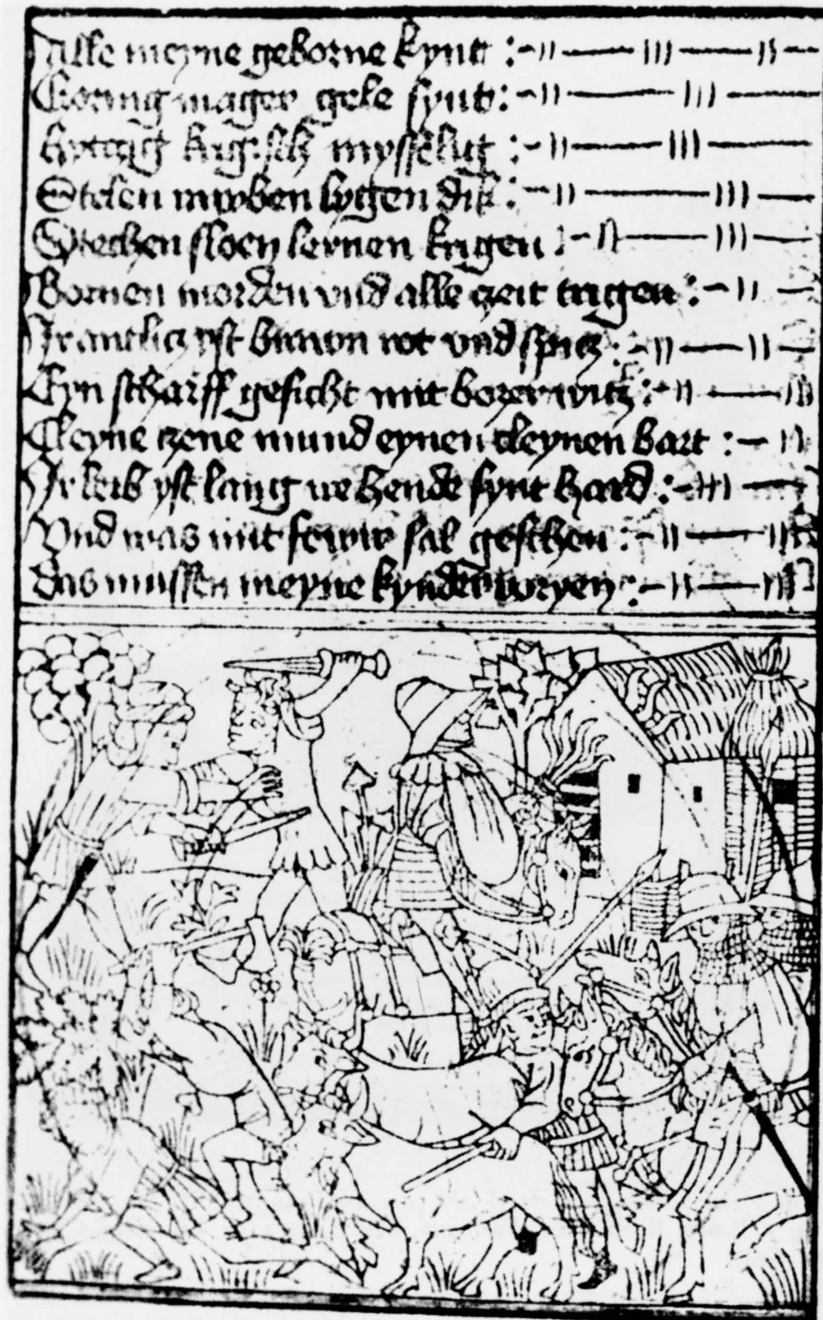 Alle meyne geborne kynt :
Czornig mager gele synt :
hyczig krigisch mysselig :
Stelen rawben lygen dik :
Stechen sloen leynen krigen :
Bornen morden vnd alle czeit trigen :
Ir antlicz yst brawn rot vnd spicz :
Eyn scharff gesicht mit bozer wicz :
Cleyne czene mund eynen cleynen bart :
Ir leib yst lang hende synt hard :
Vnd was mit fewir sal geschen :
das mussen meyne kynder